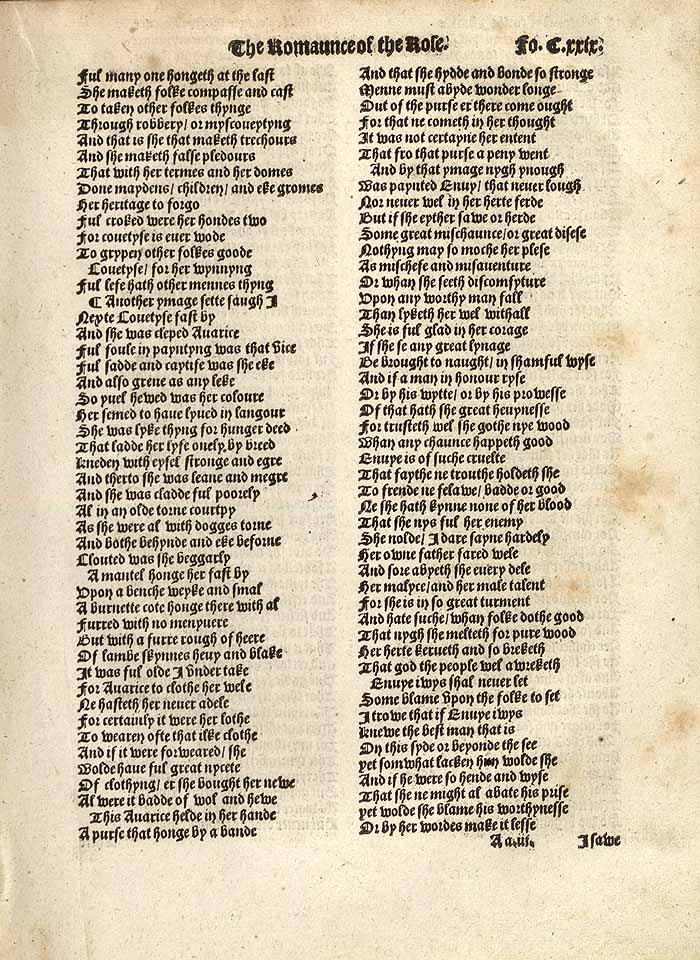 The Romaunce of the Rose. Fo. C.xxix.
Ful many one hongeth at the last
She maketh folke compasse and cast
To taken other folkes thynge
Through robbery/ or myscoueptyng
And that is she that maketh trechours
And she maketh false pledours
That with her termes and her domes
Done maydens/ children/ and eke gromes
Her heritage to forgo
Ful croked were her hondes two
For couetyse is euer wode
To grypen other folkes goode
Couetyse/ for her wynnyng
Ful lefe hath other mennes thyng
¶ Another ymage sette saugh I
Nexte Couetyse fast by
And she was cleped Auarice
Ful foule in payntyng was that vice
Ful sadde and caytife was she eke
And also grene as any leke
So yuel hewed was her coloure
Her semed to haue lyued in langour
She was lyke thyng for hunger deed
That ladde her lyfe onely by breed
kneden with eysel stronge and egre
And therto she was leane and megre
And she was cladde ful poorely
Al in an olde torne courtpy
As she were al with dogges torne
And bothe behynde and eke beforne
Clouted was she beggarly
A mantel honge her fast by
Vpon a benche weyke and smal
A burnette cote honge there with al
Furred with no menyuere
But with a furre rough of heere
Of lambe skynnes heuy and blake
It was ful olde I vnder take
For Auarice to clothe her wele
Ne hasteth her neuer adele
For certainly it were her lothe
To wearen ofte that ilke clothe
And if it were forweared/ she
Wolde haue ful great nycete
Of clothyng/ er she bought her newe
Al were it badde of wol and hewe
This Auarice helde in her hande
A purse that honge by a bande
And that she hydde and bonde so stronge
Menne must abyde wonder longe
Out of the purse er there come ought
For that ne cometh in her thought
It was not certayne her entent
That fro that purse a peny went
And by that ymage nygh ynough
Was paynted Enuy/ that neuer lough
Nor neuer wel in her herte ferde
But if she eyther sawe or herde
Some great mischaunce/or great disese
Nothyng may so moche her plese
As mischefe and misauenture
Or whan she seeth discomfyture
Vpon any worthy man fall
Than lyketh her wel withall
She is ful glad in her corage
If she se any great lynage
Be brought to naught/ in shamful wyse
And if a man in honour ryse
Or by his wytte/ or by his prowesse
Of that hath she great heuynesse
For trusteth wel she gothe nye wood
Whan any chaunce happeth good
Enuye is of suche cruelte
That faythe ne trouthe holdeth she
To frende ne felawe/ badde or good
Ne she hath kynne none of her blood
That she nys ful her enemy
She nolde/ I dare sayne hardely
Her owne father fared wele
And sore abyeth she euery dele
Her malyce/and her male talent
For she is in so great turment
And hate suche/whan folke dothe good
That nygh she melteth for pure wood
Her herte kerueth and so breketh
That god the people wel awreketh
Enuye iwys shal neuer let
Some blame vpon the folke to set
I trowe that if Enuye iwys
knewe the best man that is
On this syde or beyonde the see
yet somwhat lacken him wolde she
And if he were so hende and wyse
That she ne might al abate his prise
yet wolde she blame his worthynesse
Or by her wordes make it lesse
A a.iii. I sawe